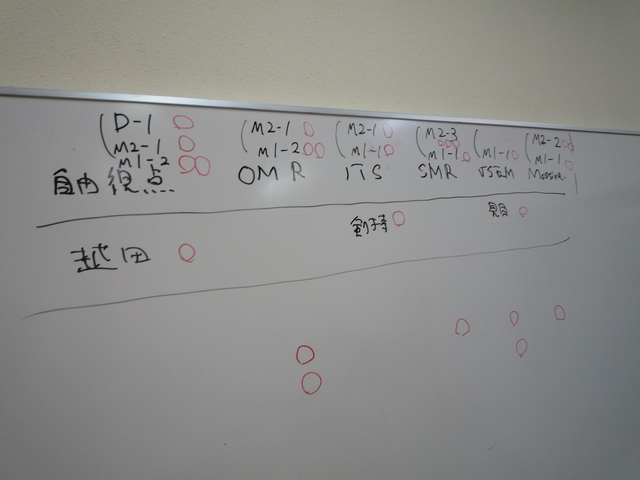 D-1
M2-1
M1-2
自由視点
M2-1
M1-2
OMR
M2-1
M1-1
ITS
M2-3
M1-1
SMR
M1-1
VSEM
M2-2
M1-1
Massive
越田
剣持
見目